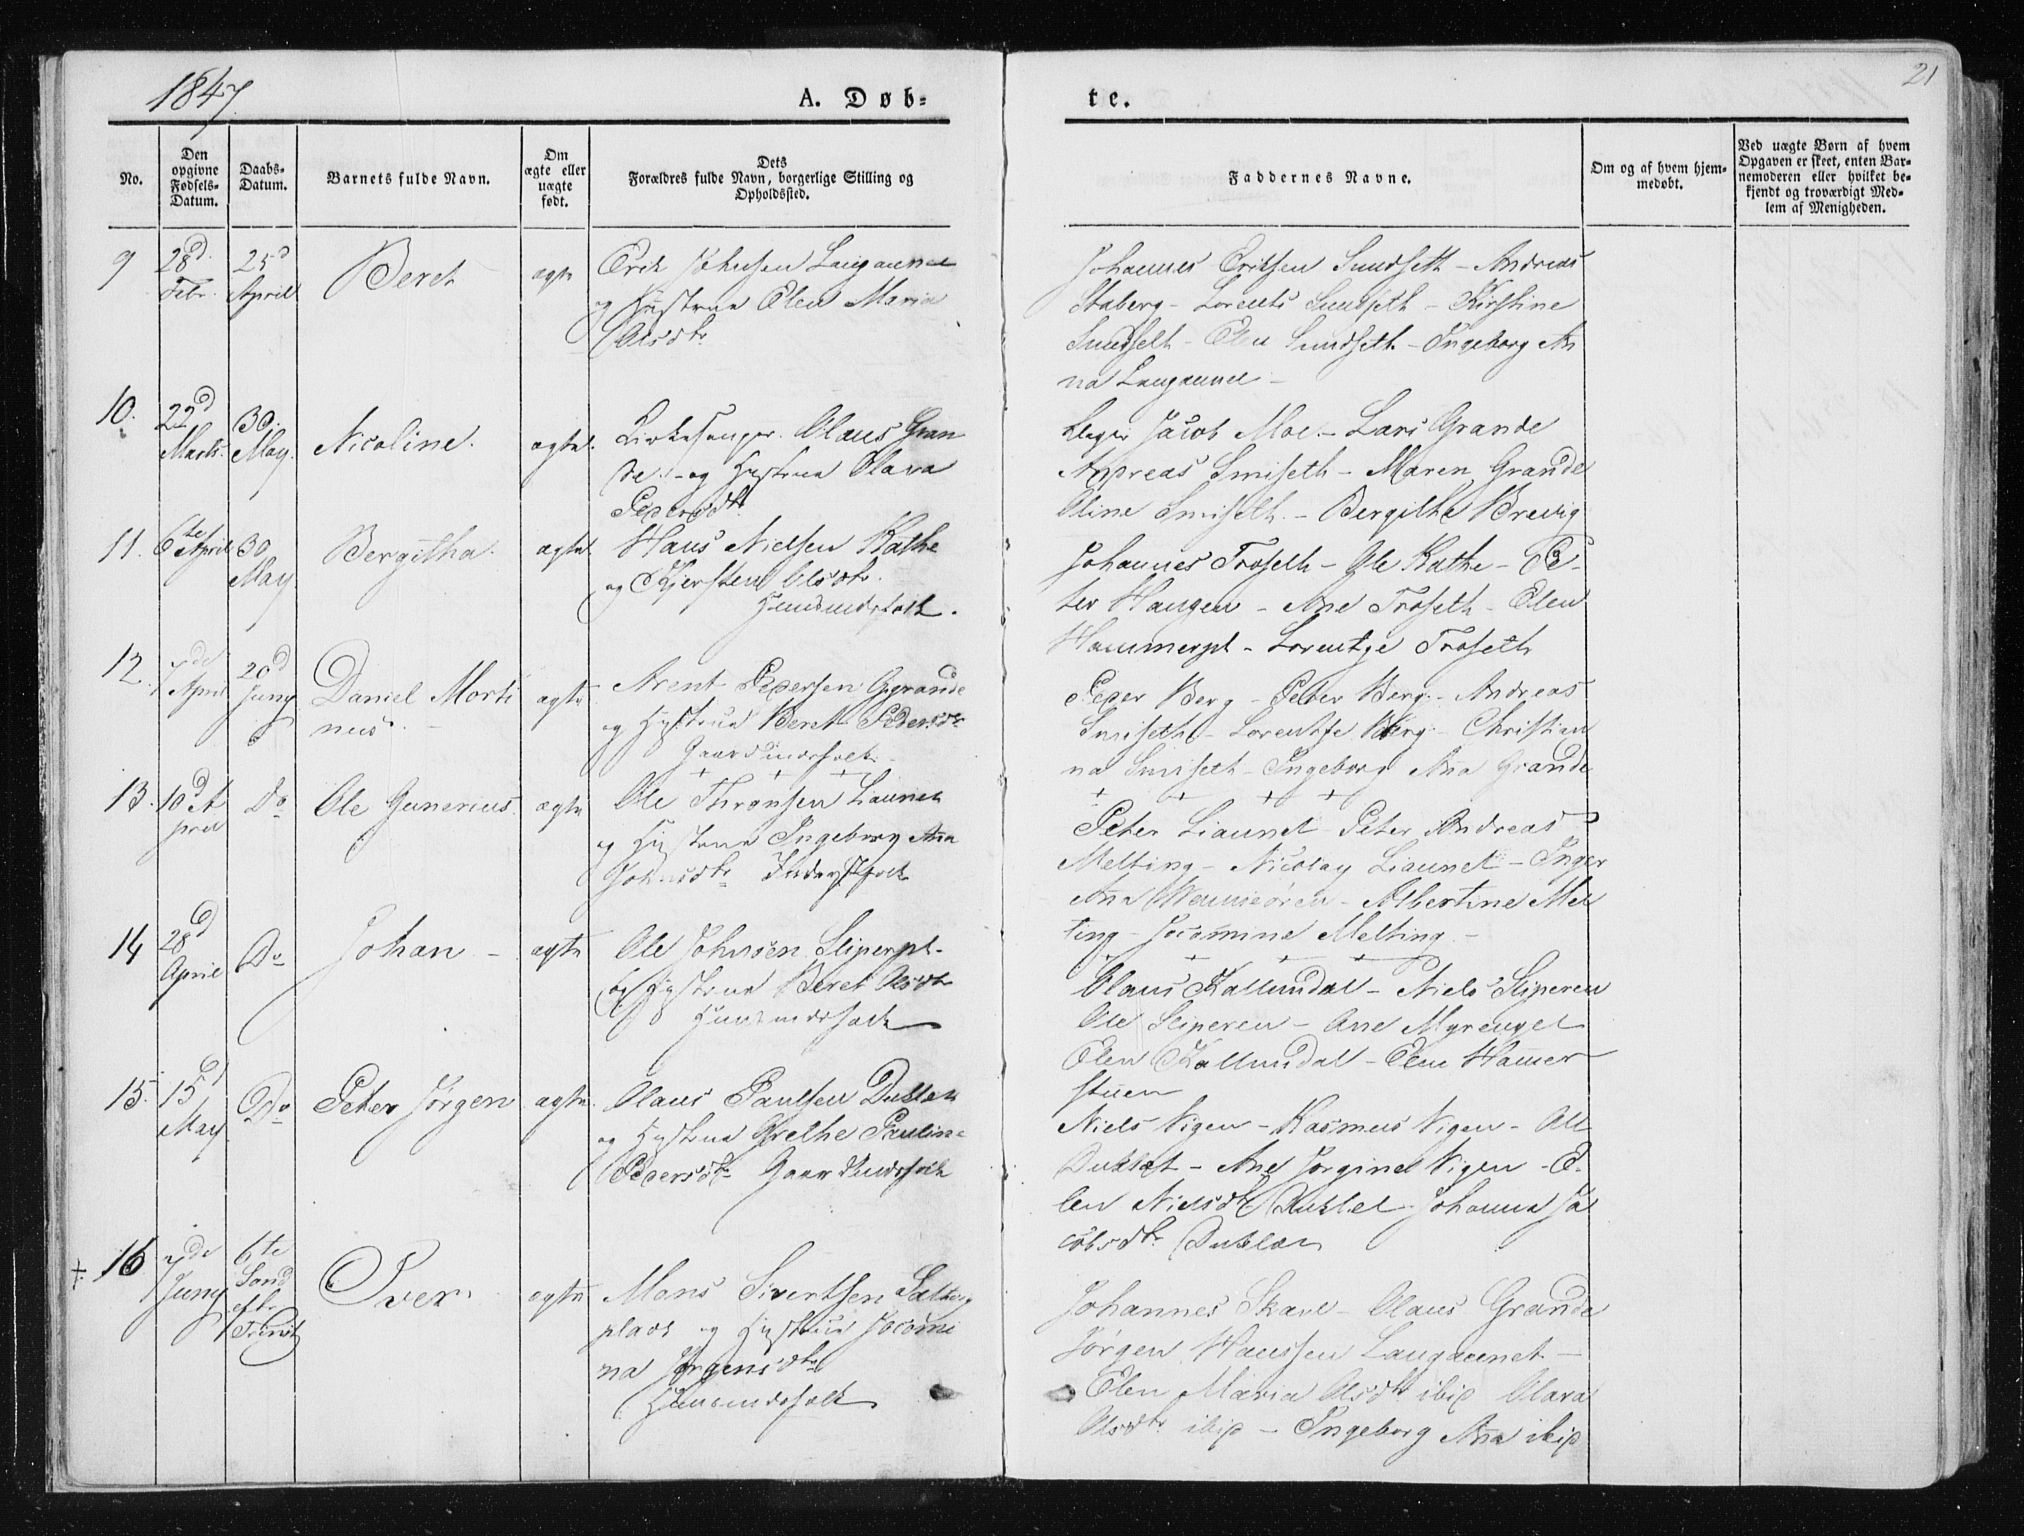 1847.
A. Døb=
te.
21
No.
Den opgivne Fødsels-Datum.
Daabs-Datum.
Barnets fulde Navn.
Om ægte eller uægte født.
Dets Forældres fulde Navn, borgerlige Stilling og Opholdssted.
Faddernes Navne.
Om og af hvem hjemmedøbt.
Ved uægte Børn af hvem Opgaven er skeet, enten Barnemoderen eller hvilket bekjendt og troværdigt Medlem af Menigheden.
9
28d Febr.
25d April
Beret
ægte
Erik Johnsen Langaunet
og Hustrue Elen Maria
Olsdtr
Johannes Eriksen Sundseth - Andreas
Staberg - Lorents Sundseth - Kirstine
Sundseth - Elen Sundseth - Ingeborg An
na Langaunet -
10.
22d Marts.
30. May.
Nicoline.
ægte.
Kirkesanger. Olaus Gran
de. - og Hustrue Olava
Pedersdtr.
Jacob Moe. - Lars Grande
Andreas Smiseth - Maren Grande
Oline Smiseth. - Bergithe Brevig
11.
6te April
30 May
Bergitha.
ægte.
Hans Nielsen Kathe
og Kjersten Olsdtr.
Huusmdsfolk.
Johannes Troseth - Ole Kathe - Pe-
ter Haugen - Ane Troseth - Elen
Hammerpl - Lorentze Troseth
12.
7de April
20d Juny
Daniel Morti
nus. -
ægte
Arent Pedersen Grande
og Hustrue Beret Pedersdtr
Gaardmdsfolk.
Peder Berg - Peter Berg - Andreas
Smiseth - Lorentse Berg - Christian
na Smiseth - Ingeborg Ana Grande
13.
10d A
pril
Do
Ole Gunerius
ægte
Ole Thronsen Liaunet
og Hustrue Ingeborg Ana
Johnsdtr
Peter Liaunet Peter Andreas
Melting - Nicolay Liaunet - Inger
Ana - Albertine Mel
ting - Jacomine Melting -
14
28d April
Do
Johan -
ægte
Ole Johnsen Sliperpl.
og Hustrue Beret Olsdtr
Huusmdsfolk
Olaus Kallundal - Niels Sliperen
Ole Sliperen - Ane Myrenget
Elen Kallundal - Elen Hamer
stuen
15.
15d May
Do
Peter Jørgen
ægte.
Olaus Paulsen Duklæt
og Hustrue Grethe Pauline
Pedersdtr Gaardmdsfolk
Niels Vigen - Rasmus Vigen - Ole
Duklæt - Ane Jørgine Vigen - E-
len Nielsdtr Duklet Johanna Ja
cobsdtr. Duklæt
16
7de Juny
6te
Sønd
eft.
Trinit
Iver
ægte
Mons Sivertsen Salberg
plads og Hustrue Jacomi
na Jørgensdtr
Huusmdsfolk
Johannes Skavl - Olaus Grande
Jørgen Hanssen Langaunet. -
Elen Maria Olsdtr ibid Olava
Olsdtr. ibid - Ingeborg Ana ibid